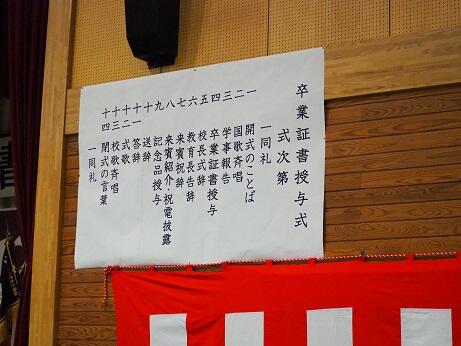 卒業証書授与式
式次第
一同礼
一 開式のことば
二 国歌斉唱
三 学事報告
四 卒業証書授与
五 校長式辞
六 教育長告辞
七 来賓祝辞
八 来賓紹介・祝電披露
九 記念品授与
十 送辞
十一 答辞
十二 式歌
十三 校歌斉唱
十四 閉式の言葉
一同礼